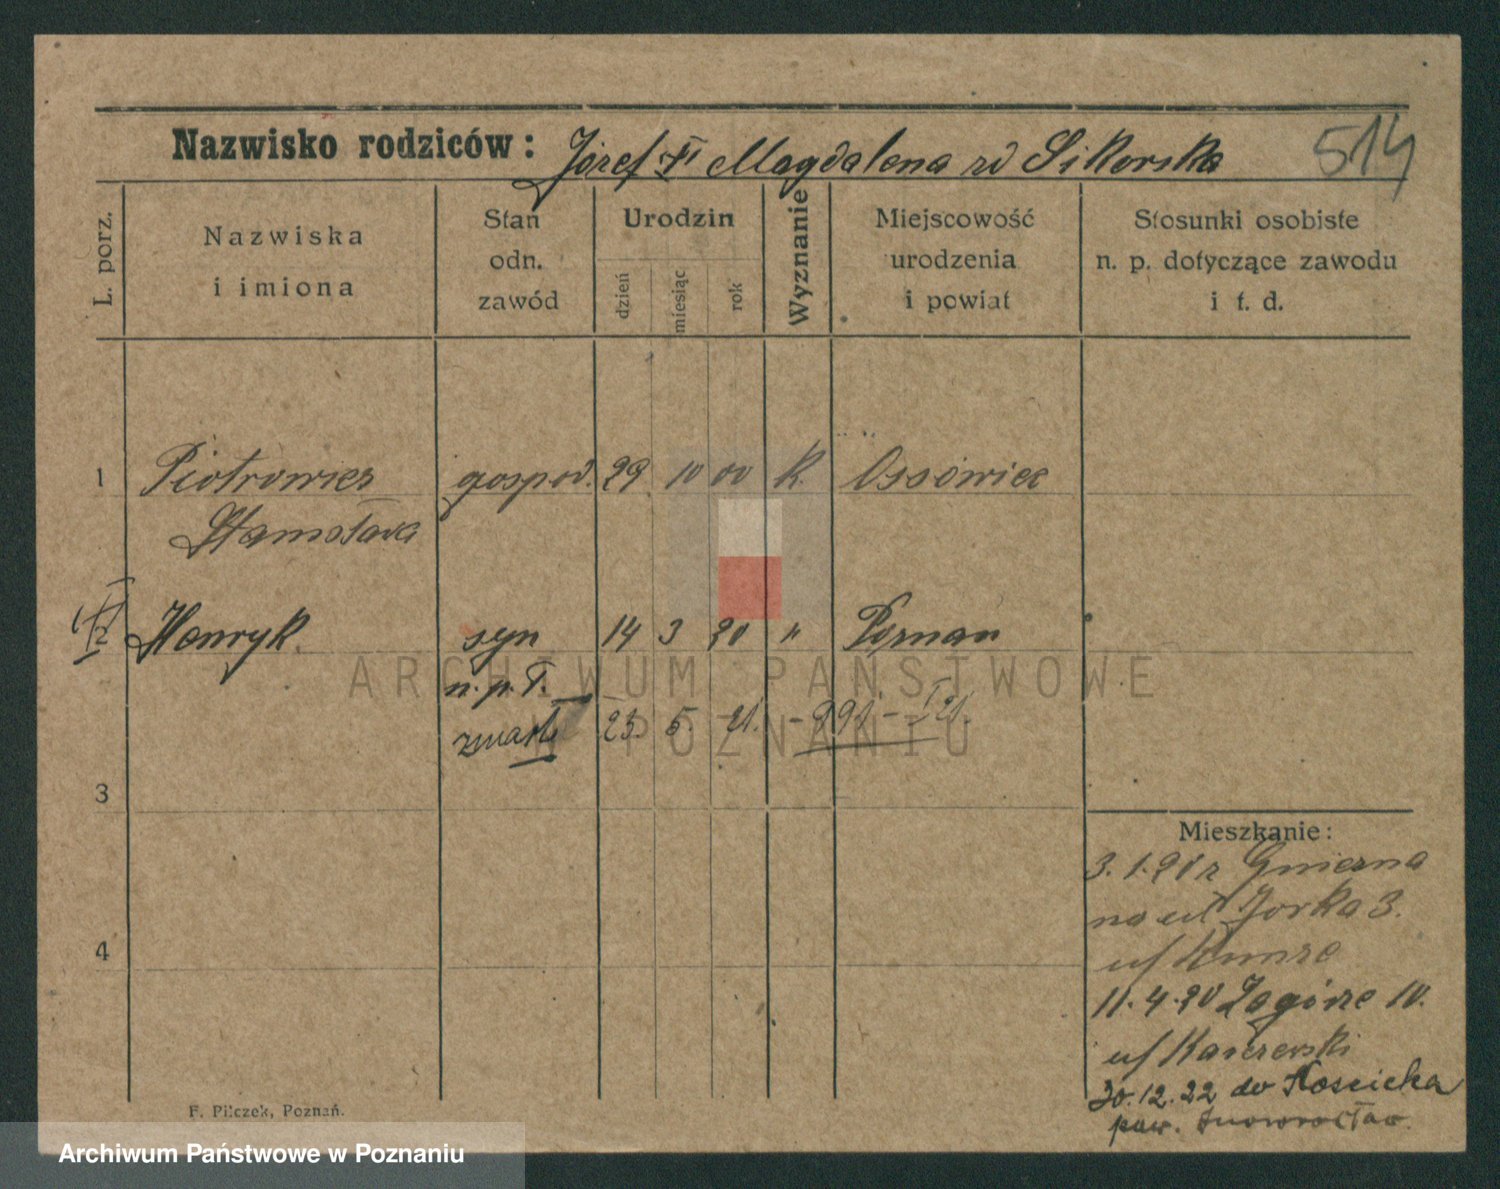 Nazwisko rodziców: Józef i Magdalena zd Sikorska 514
L. porz.
Nazwiska
i imiona
Stan
odn.
zawód
Urodzin
dzień
miesiąc
rok
Wyznanie
Miejscowość
urodzenia
i powiat
Stosunki osobiste
n. p. dotyczące zawodu
i t. d.
1 Piotrowicz gospod. 29 10 00 k. Ossówiec
Stanisława
2 Henryk. syn 14 3 20 " Poznań
n. p. T.
zmarł 23. 5. 21. - 991 - 21.
3
4
Mieszkanie:
3.1.20 z Gniezna
na ul Jorka 3.
u/ Kunze
11.4.20 Zagórze 10.
u/ Kaczerski
30.12.22 do Kościelca
pow. Inowrocław.
F. Pilczek, Poznań.
ARCHIWUM PAŃSTWOWE
W POZNANIU
Archiwum Państwowe w Poznaniu